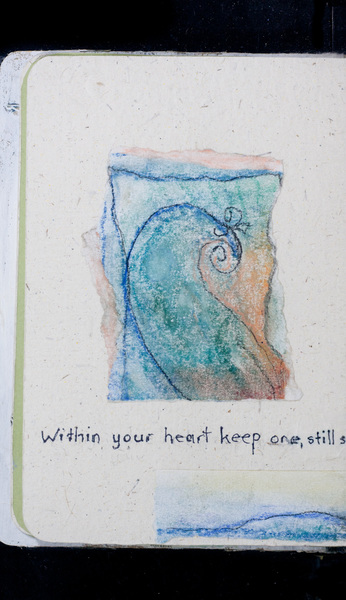 Within your heart keep one, still s